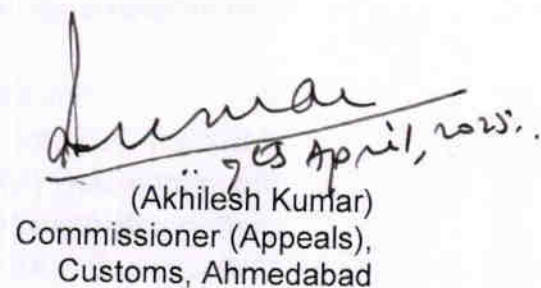 7th April, 2025..
(Akhilesh Kumar)
Commissioner (Appeals),
Customs, Ahmedabad